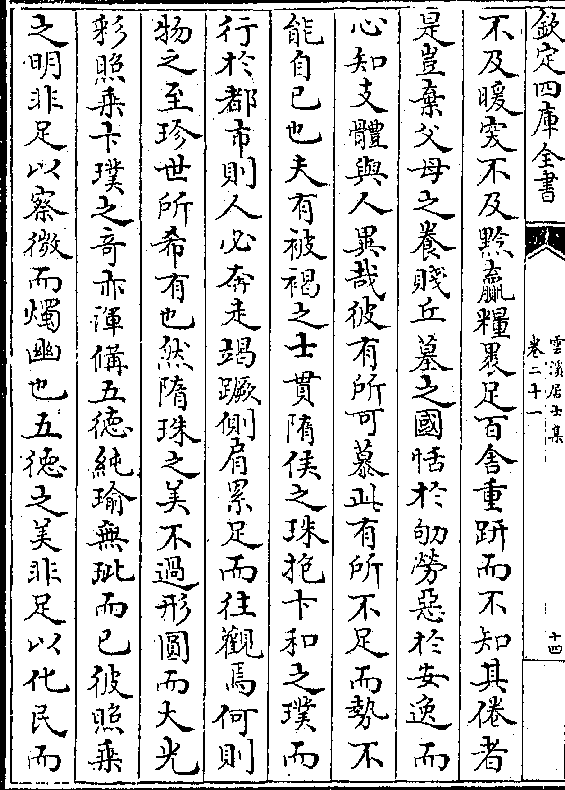 欽定四庫全書
雲溪居士集
卷二十一
十四
不及暖突不及黔贏糧裹足百舍重趼而不知其倦者
是豈棄父母之養賤丘墓之國恬於劬勞惡於安逸而
心知支體與人異哉彼有所可慕此有所不足而勢不
能自已也夫有被褐之士貫隋侯之珠抱卞和之璞而
行於都市則人必奔走竭蹶側肩累足而往觀焉何則
物之至珍世所希有也然隋珠之美不過形圓而大光
彩照乗卞璞之竒亦渾備五徳純瑜無玼而已彼照乗
之明非足以察微而燭幽也五徳之美非足以化民而